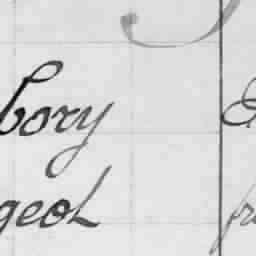 bory
geol
fr